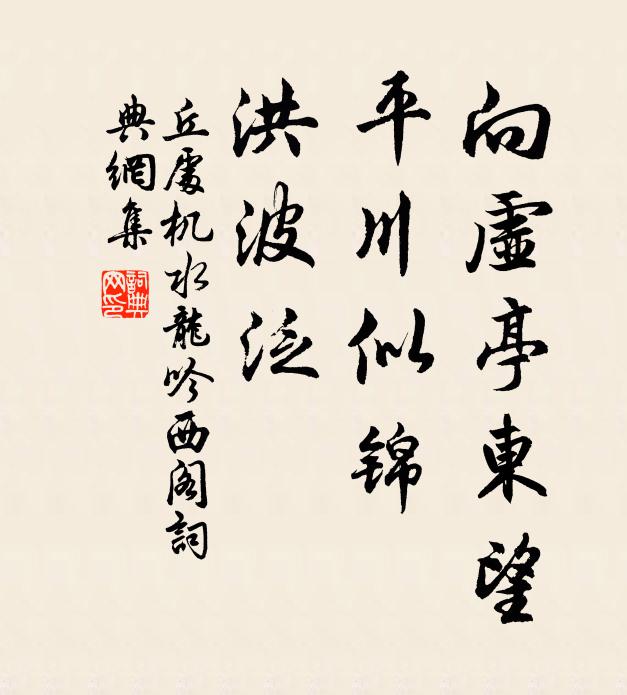 向虛亭東望
平川似錦
洪波泛
丘處机水龍吟西閣詞
典網集
詞典
网印